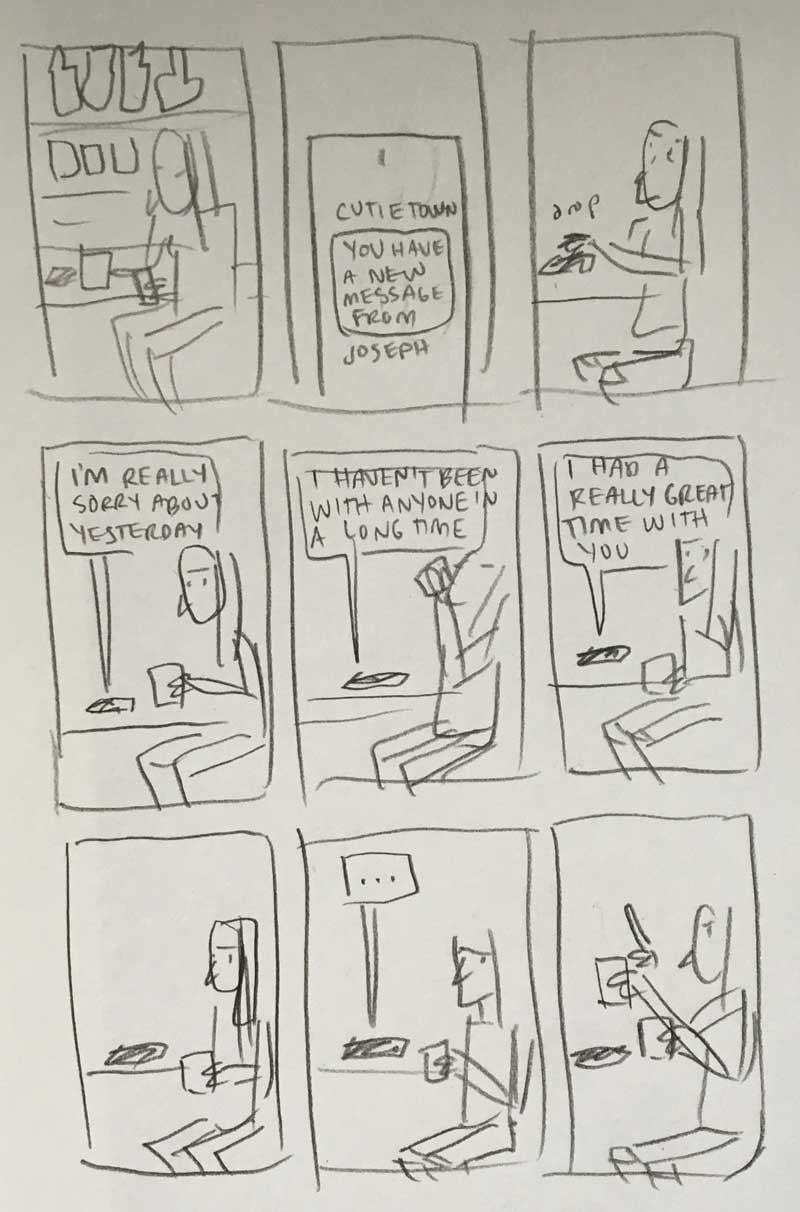 CUTIETOWN
YOU HAVE
A NEW
MESSAGE
FROM
JOSEPH
I'M REALLY
SORRY ABOUT
YESTERDAY
I HAVEN'T BEEN
WITH ANYONE IN
A LONG TIME
I HAD A
REALLY GREAT
TIME WITH
YOU
...